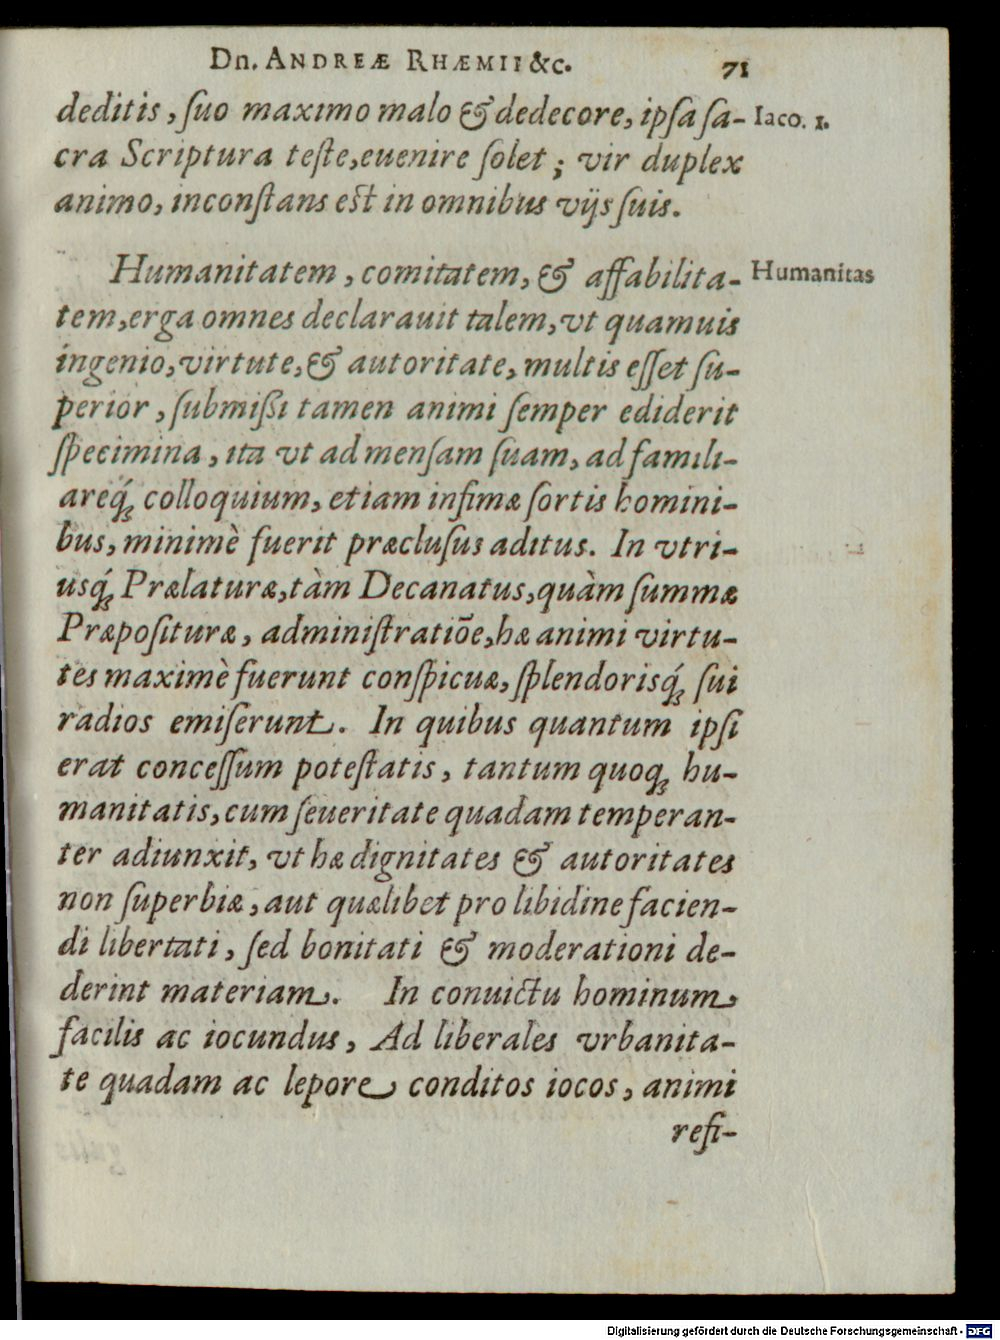 Dn. ANDREÆ RHÆMII &c. 71
deditis, ſuo maximo malo & dedecore, ipſa ſa- Iaco. 1.
cra Scriptura teſte, euenire ſolet; vir duplex
animo, inconſtans eſt in omnibus vijs ſuis.
Humanitatem, comitatem, & affabilita- Humanitas
tem, erga omnes declarauit talem, vt quamuis
ingenio, virtute, & autoritate, multis eſſet ſu-
perior, ſubmißi tamen animi ſemper ediderit
ſpecimina, ita vt ad menſam ſuam, ad famili-
areq́; colloquium, etiam infimæ ſortis homini-
bus, minimè fuerit præcluſus aditus. In vtri-
usq́; Prælaturæ, tàm Decanatus, quàm ſummæ
Præpoſituræ, adminiſtratiõe, hæ animi virtu-
tes maximè fuerunt conſpicuæ, ſplendorisq́; ſui
radios emiſerunt. In quibus quantum ipſi
erat conceſſum poteſtatis, tantum quoq; hu-
manitatis, cum ſeueritate quadam temperan-
ter adiunxit, vt hæ dignitates & autoritates
non ſuperbiæ, aut quælibet pro libidine facien-
di libertati, ſed bonitati & moderationi de-
derint materiam. In conuictu hominum
facilis ac iocundus, Ad liberales vrbanita-
te quadam ac lepore conditos iocos, animi
refi-
Digitalisierung gefördert durch die Deutsche Forschungsgemeinschaft - DFG